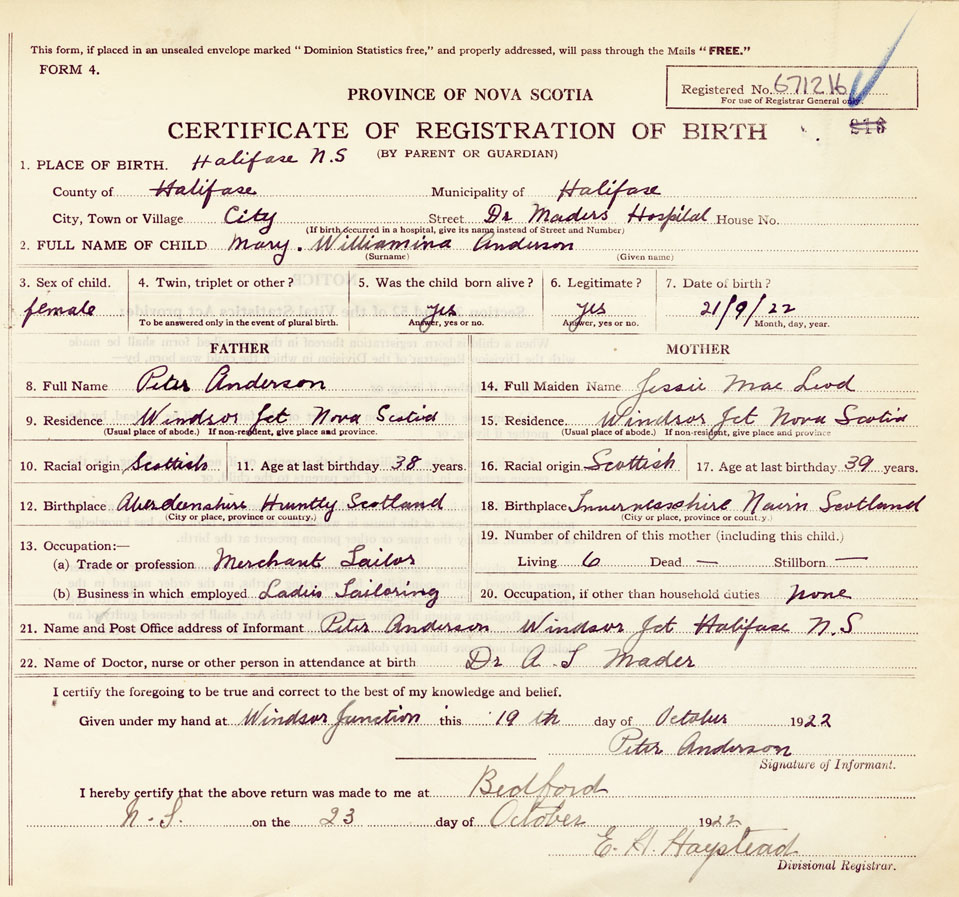 This form, if placed in an unsealed envelope marked "Dominion Statistics free," and properly addressed, will pass through the Mails "FREE."
FORM 4.
Registered No. 671216
For use of Registrar General only.
PROVINCE OF NOVA SCOTIA
CERTIFICATE OF REGISTRATION OF BIRTH
216
(BY PARENT OR GUARDIAN)
1. PLACE OF BIRTH. Halifax N.S
County of Halifax Municipality of Halifax
City, Town or Village City Street Dr Maders Hospital House No.
(If birth occurred in a hospital, give its name instead of Street and Number)
2. FULL NAME OF CHILD Mary. Williamina Anderson
(Surname) (Given name)
3. Sex of child. 4. Twin, triplet or other? 5. Was the child born alive? 6. Legitimate? 7. Date of birth?
female yes yes 21/9/22
To be answered only in the event of plural birth. Answer, yes or no. Answer, yes or no. Month, day, year.
FATHER MOTHER
8. Full Name Peter Anderson 14. Full Maiden Name Jessie Mac Leod
9. Residence Windsor Jct Nova Scotia 15. Residence. Windsor Jct Nova Scotia
(Usual place of abode.) If non-resident, give place and province. (Usual place of abode.) If non-resident, give place and province
10. Racial origin Scottish 11. Age at last birthday 38 years. 16. Racial origin Scottish 17. Age at last birthday 39 years.
12. Birthplace Aberdeenshire Huntly Scotland 18. Birthplace Invernessshire Nairn Scotland
(City or place, province or country.) (City or place, province or country.)
13. Occupation:— 19. Number of children of this mother (including this child.)
(a) Trade or profession Merchant Tailor Living 6 Dead — Stillborn —
(b) Business in which employed Ladies Tailoring 20. Occupation, if other than household duties None
21. Name and Post Office address of Informant Peter Anderson Windsor Jct Halifax N.S
22. Name of Doctor, nurse or other person in attendance at birth Dr A. I Mader
I certify the foregoing to be true and correct to the best of my knowledge and belief.
Given under my hand at Windsor Junction this 19 th day of October 1922
Peter Anderson
Signature of Informant.
I hereby certify that the above return was made to me at Bedford
N.S. on the 23 day of October 1922
E. H. Haystead
Divisional Registrar.